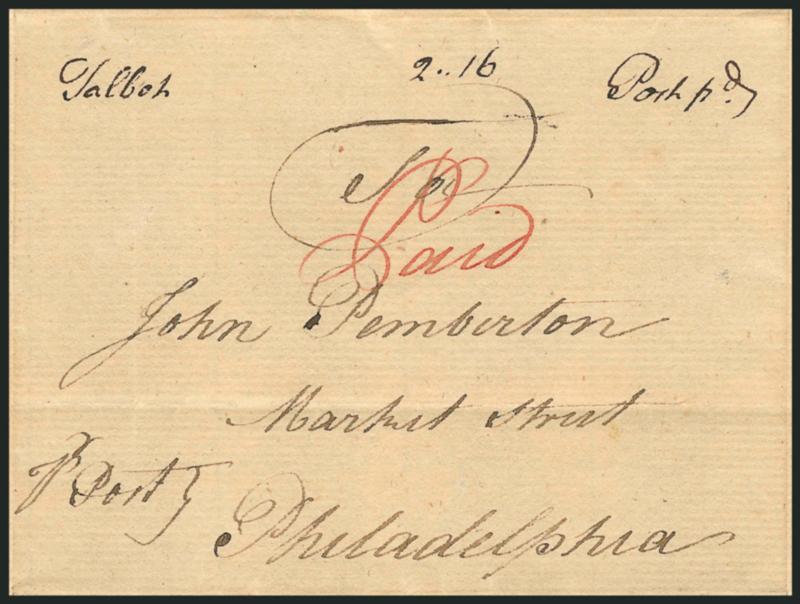 Talbot 2..16 Post pd
To
Paid
John Pemberton
Market Street
pr Post
Philadelphia